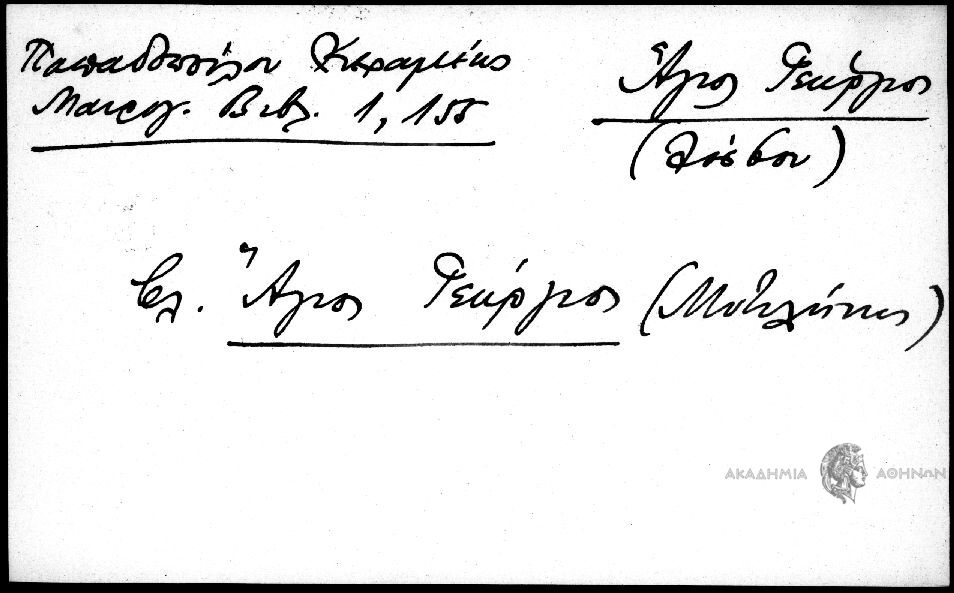 Παπαδοπούλου Κεραμέως
Μαυρογ. Βιβλ. 1, 155
Ἅγιος Γεώργιος
(Λέσβου)
βλ. Ἅγιος Γεώργιος (Μυτιλήνης)
ΑΚΑΔΗΜΙΑ ΑΘΗΝΩΝ